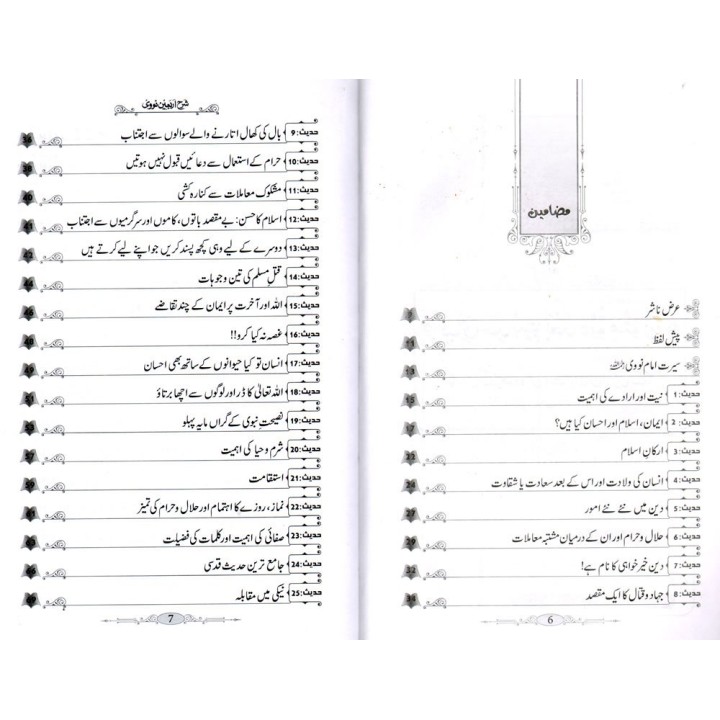 مضامین
عرض ناشر
پیش لفظ
سیرت امام نووی رحمہ اللہ 13
حدیث: 1 نیت اور ارادے کی اہمیت 15
حدیث: 2 ایمان، اسلام اور احسان کیا ہیں؟
حدیث: 3 ارکانِ اسلام 23
حدیث: 4 انسان کی ولادت اور اس کے بعد سعادت یا شقاوت
حدیث: 5 دین میں نئے نئے امور 27
حدیث: 6 حلال و حرام اور ان کے درمیان مشتبہ معاملات 29
حدیث: 7 دین خیر خواہی کا نام ہے! 32
حدیث: 8 جہاد و قتال کا ایک مقصد 34
6
شرح اربعین نووی
حدیث: 9 بال کی کھال اتارنے والے سوالوں سے اجتناب
حدیث: 10 حرام کے استعمال سے دعائیں قبول نہیں ہوتیں
حدیث: 11 مشکوک معاملات سے کنارہ کشی 40
حدیث: 12 اسلام کا حسن: بے مقصد باتوں، کاموں اور سرگرمیوں سے اجتناب 41
حدیث: 13 دوسرے کے لیے وہی کچھ پسند کریں جو اپنے لیے کرتے ہیں
حدیث: 14 قتلِ مسلم کی تین وجوہات 44
حدیث: 15 اللہ اور آخرت پر ایمان کے چند تقاضے
حدیث: 16 غصہ نہ کیا کرو!!
حدیث: 17 انسان تو کیا حیوانوں کے ساتھ بھی احسان
حدیث: 18 اللہ تعالیٰ کا ڈر اور لوگوں سے اچھا برتاؤ
حدیث: 19 نصیحت نبوی کے گراں مایہ پہلو
حدیث: 20 شرم و حیا کی اہمیت
حدیث: 21 استقامت
حدیث: 22 نماز، روزے کا اہتمام اور حلال و حرام کی تمیز
حدیث: 23 صفائی کی اہمیت اور کلمات کی فضیلت
حدیث: 24 جامع ترین حدیث قدسی
حدیث: 25 نیکی میں مقابلہ
7